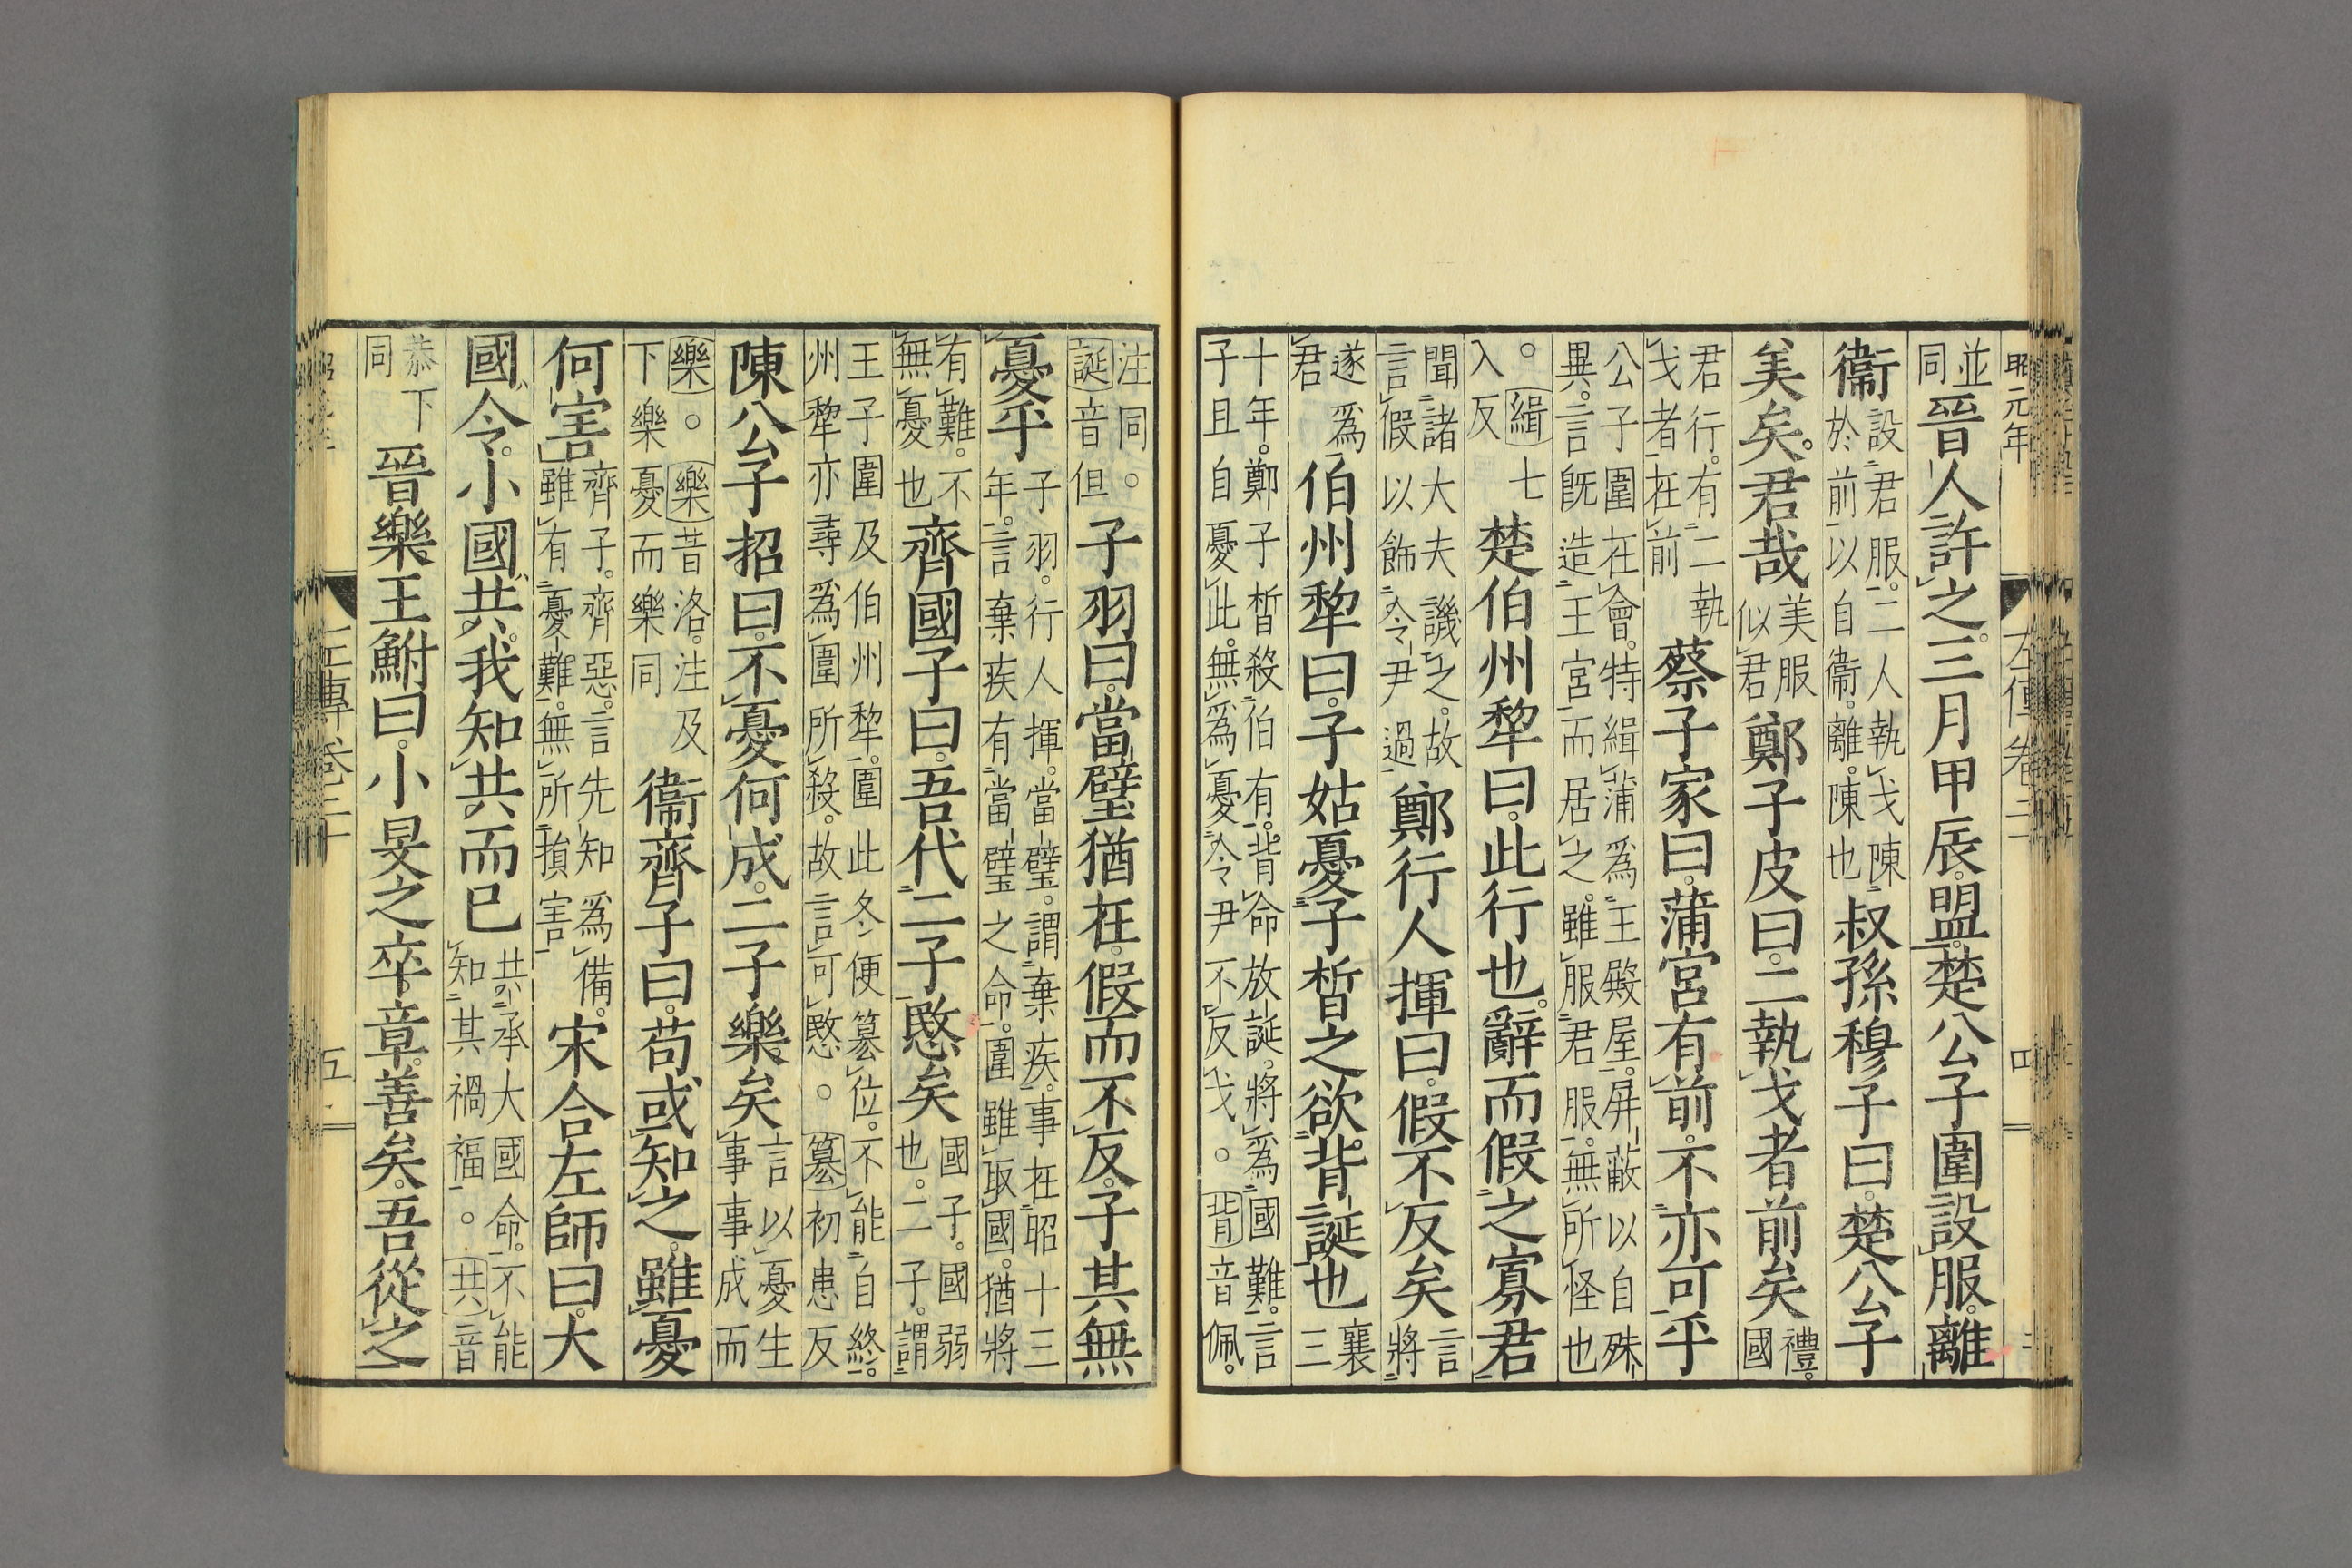 昭元年 左傳卷二 四
並同晉人許之。三月甲辰。盟。楚公子圍設服。離
衞設君服。二人執戈陳於前以自衞。離。陳也叔孫穆子曰。楚公子
美矣。君哉美服似君鄭子皮曰。二執戈者前矣禮。國
君行。有二執戈者在前蔡子家曰。蒲宮有前。不亦可乎
公子圍在會。特緝蒲爲王殿屋。屏蔽以自殊異。言旣造王宮而居之。雖服君服。無所怪也
○緝七入反楚伯州犂曰。此行也。辭而假之寡君
聞諸大夫譏之。故言假以飾令尹過鄭行人揮曰。假不反矣言將
遂爲君伯州犂曰。子姑憂子晳之欲背誕也襄三
十年。鄭子晳殺伯有。背命放誕。將爲國難。言子且自憂此。無爲憂令尹不反戈。○背音佩。
注同。○誕音但子羽曰。當璧猶在。假而不反。子其無
憂乎子羽。行人揮。當璧。謂棄疾。事在昭十三年。言棄疾有當璧之命。圍雖取國。猶將
有難。不無憂也齊國子曰。吾代二子愍矣國子。國弱也。二子。謂
王子圍及伯州犂。圍此冬便簒位。不能自終。州犂亦尋爲圍所殺。故言可愍。○簒初患反
陳公子招曰。不憂何成。二子樂矣言以憂生事事成而
樂。○樂音洛。注及下樂憂而樂同衞齊子曰。苟或知之。雖憂
何害齊子。齊惡。言先知爲備。雖有憂難。無所損害宋合左師曰。大
國令。小國共。我知共而已共承大國命。不能知其禍福。○共音
恭下同晉樂王鮒曰。小旻之卒章善矣。吾從之
左傳卷二十 五